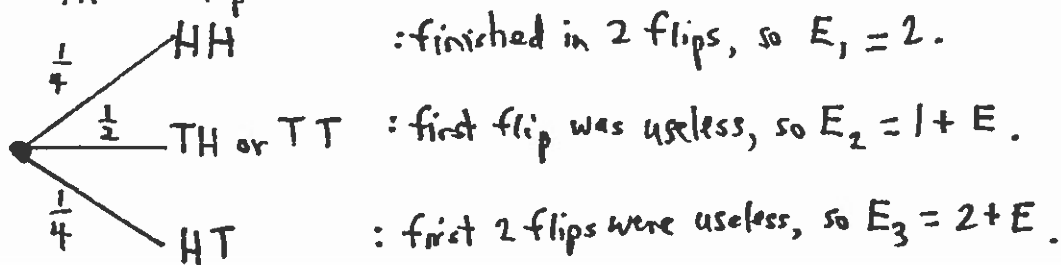 1/4 HH : finished in 2 flips, so E₁ = 2.
1/2 TH or TT : first flip was useless, so E₂ = 1 + E.
1/4 HT : first 2 flips were useless, so E₃ = 2 + E.